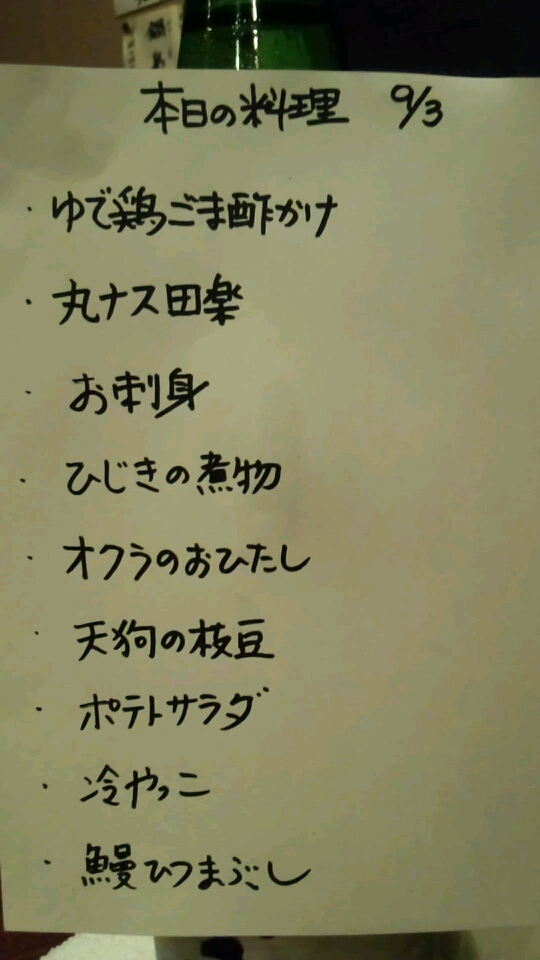 本日の料理 9/3
・ゆで鶏ごま酢かけ
・丸ナス田楽
・お刺身
・ひじきの煮物
・オクラのおひたし
・天狗の枝豆
・ポテトサラダ
・冷やっこ
・鰻ひつまぶし